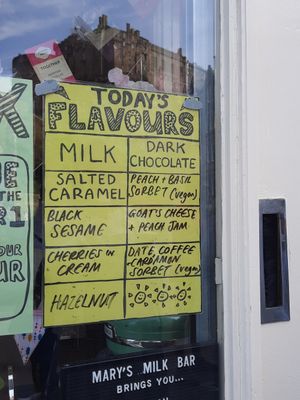 TOGETHER
TODAY'S
FLAVOURS
MILK
DARK
CHOCOLATE
SALTED
CARAMEL
PEACH + BASIL
SORBET (vegan)
BLACK
SESAME
GOAT'S CHEESE
+ PEACH JAM
CHERRIES IN
CREAM
DATE COFFEE
CARDAMON
SORBET (vegan)
HAZELNUT
THE
1
OUR
UR
MARY'S MILK BAR
BRINGS YOU...